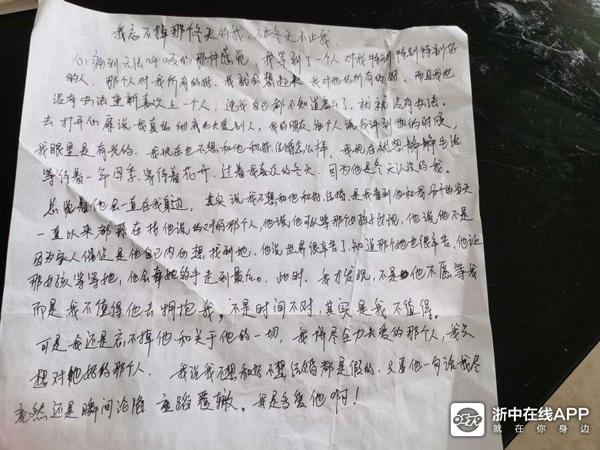 我忘不掉那修大的我，不止冬天不止我。
心痛到无法呼吸的那种感觉，我等到了一个人对我特别特别特别好
的人。那个人对我所有的好，我就会想起来我对他的所有的好，而且我也
没有办法重新喜欢上一个人，连我自己都不知道怎么了，就是没有办法
去打开心扉说我真的彻底的去爱别人，我的朋友每个人说我讲到他的时候，
我眼里是有光的。我现在也不想和他和好结婚怎么样，我现在就想静静生活
等待着一年四季，等待着花开，过着我喜欢的冬天，因为他是冬天认识的我。
总觉着他是一直在我身边，其实说我不想和他和好结婚，是我看到他和我的聊天
一直以来都在找他说的对的那个人，他说他可以等那个女孩子出现，他说他不是
因为家人催促是他自己内心想找到她，他说世界很辛苦了知道那个她也很辛苦，他让
那女孩等等她，他会牵她的手走到最后。此时，我才发现，不是他不愿等我
而是我不值得他去拥抱我，不是时间不对，其实是我不值得。
可是我还是忘不掉他和关于他的一切，我拼尽全力去爱的那个人，我久
想对她好的那个人，我说我不想和好不想结婚都是假的，只要他一句话我尽
竟然还是瞬间沦陷 重蹈覆辙。我是多爱他啊！
浙中在线APP
就在你身边